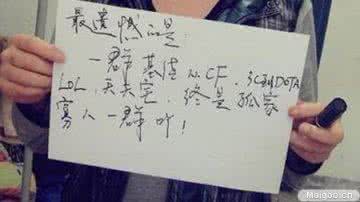 最遗憾的是:
一群基渣从CF.玩到DOTA
LOL,天天完,终是孤家
寡人一群吖!
Maigoo.cn